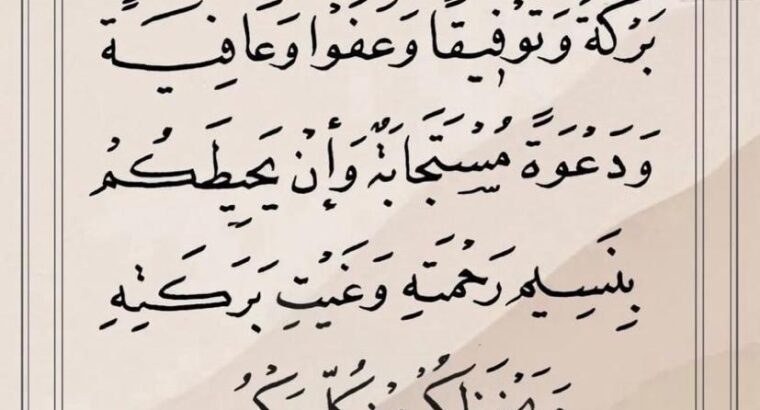 بَرَكَةً وَتَوْفِيقًا وَعَفْوًا وَعَافِيَةً
وَدَعْوَةً مُسْتَجَابَةً وَأَنْ يُحِيطَكُمْ
بِنَسِيمِ رَحْمَتِهِ وَغَيْثِ بَرَكَتِهِ